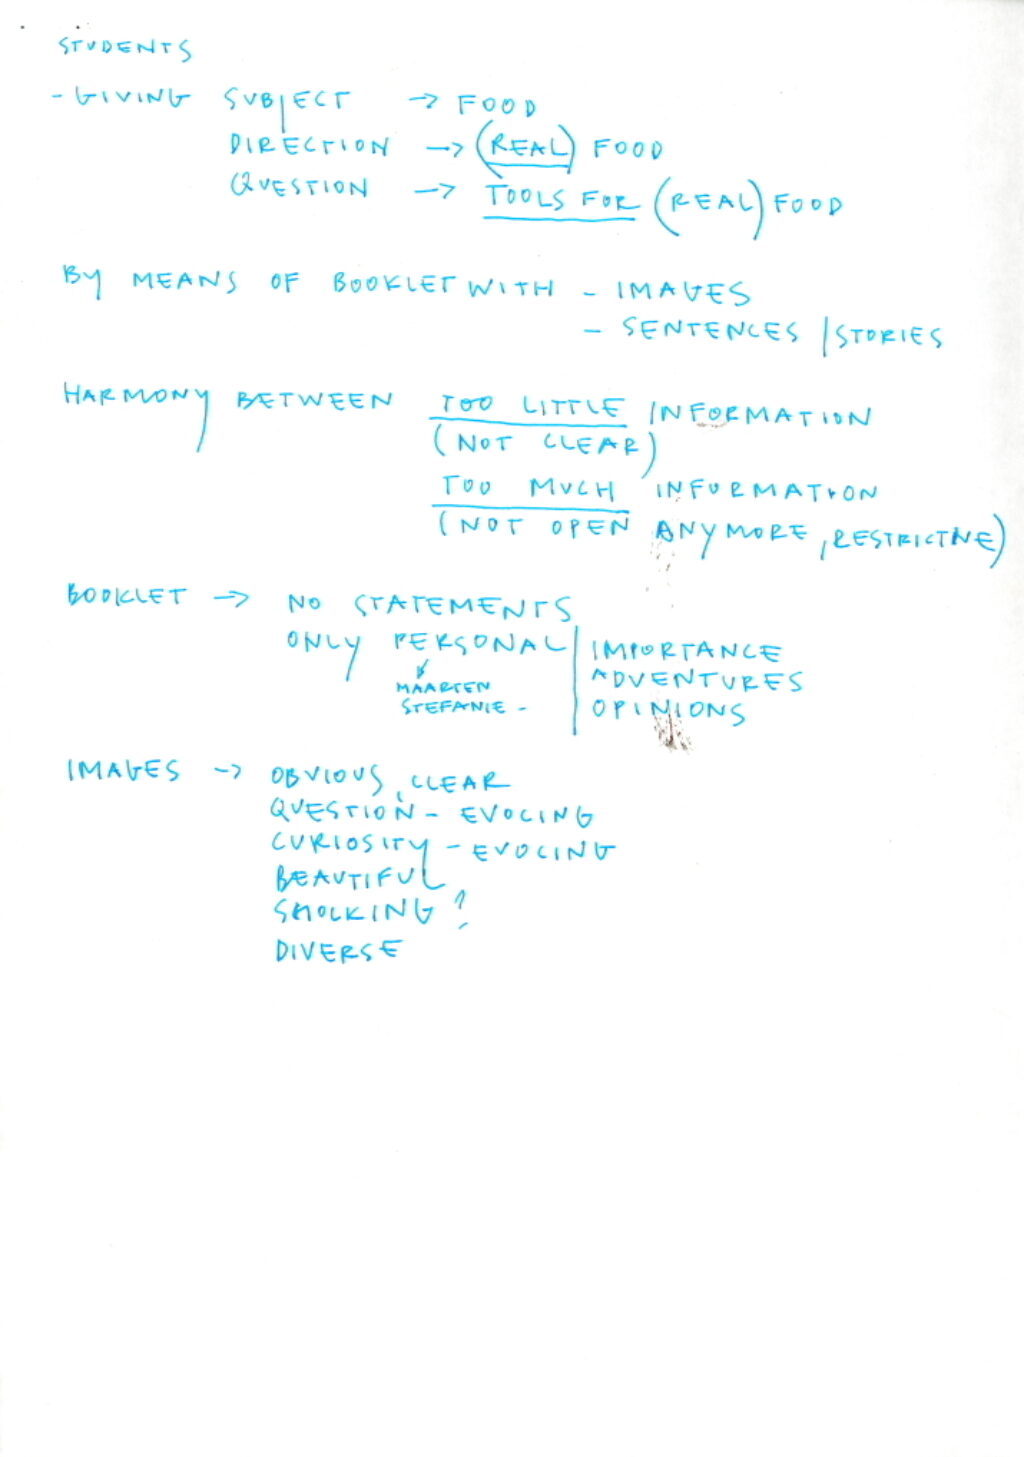 STUDENTS
- GIVING SUBJECT → FOOD
DIRECTION → (REAL) FOOD
QUESTION → TOOLS FOR (REAL) FOOD
BY MEANS OF BOOKLET WITH - IMAGES
- SENTENCES / STORIES
HARMONY BETWEEN TOO LITTLE INFORMATION
(NOT CLEAR)
TOO MUCH INFORMATION
(NOT OPEN ANYMORE, RESTRICTIVE)
BOOKLET → NO STATEMENTS
ONLY PERSONAL | IMPORTANCE
ADVENTURES
OPINIONS
MAARTEN
STEFANIE -
IMAGES → OBVIOUS, CLEAR
QUESTION - EVOCING
CURIOSITY - EVOCING
BEAUTIFUL
SHOCKING?
DIVERSE